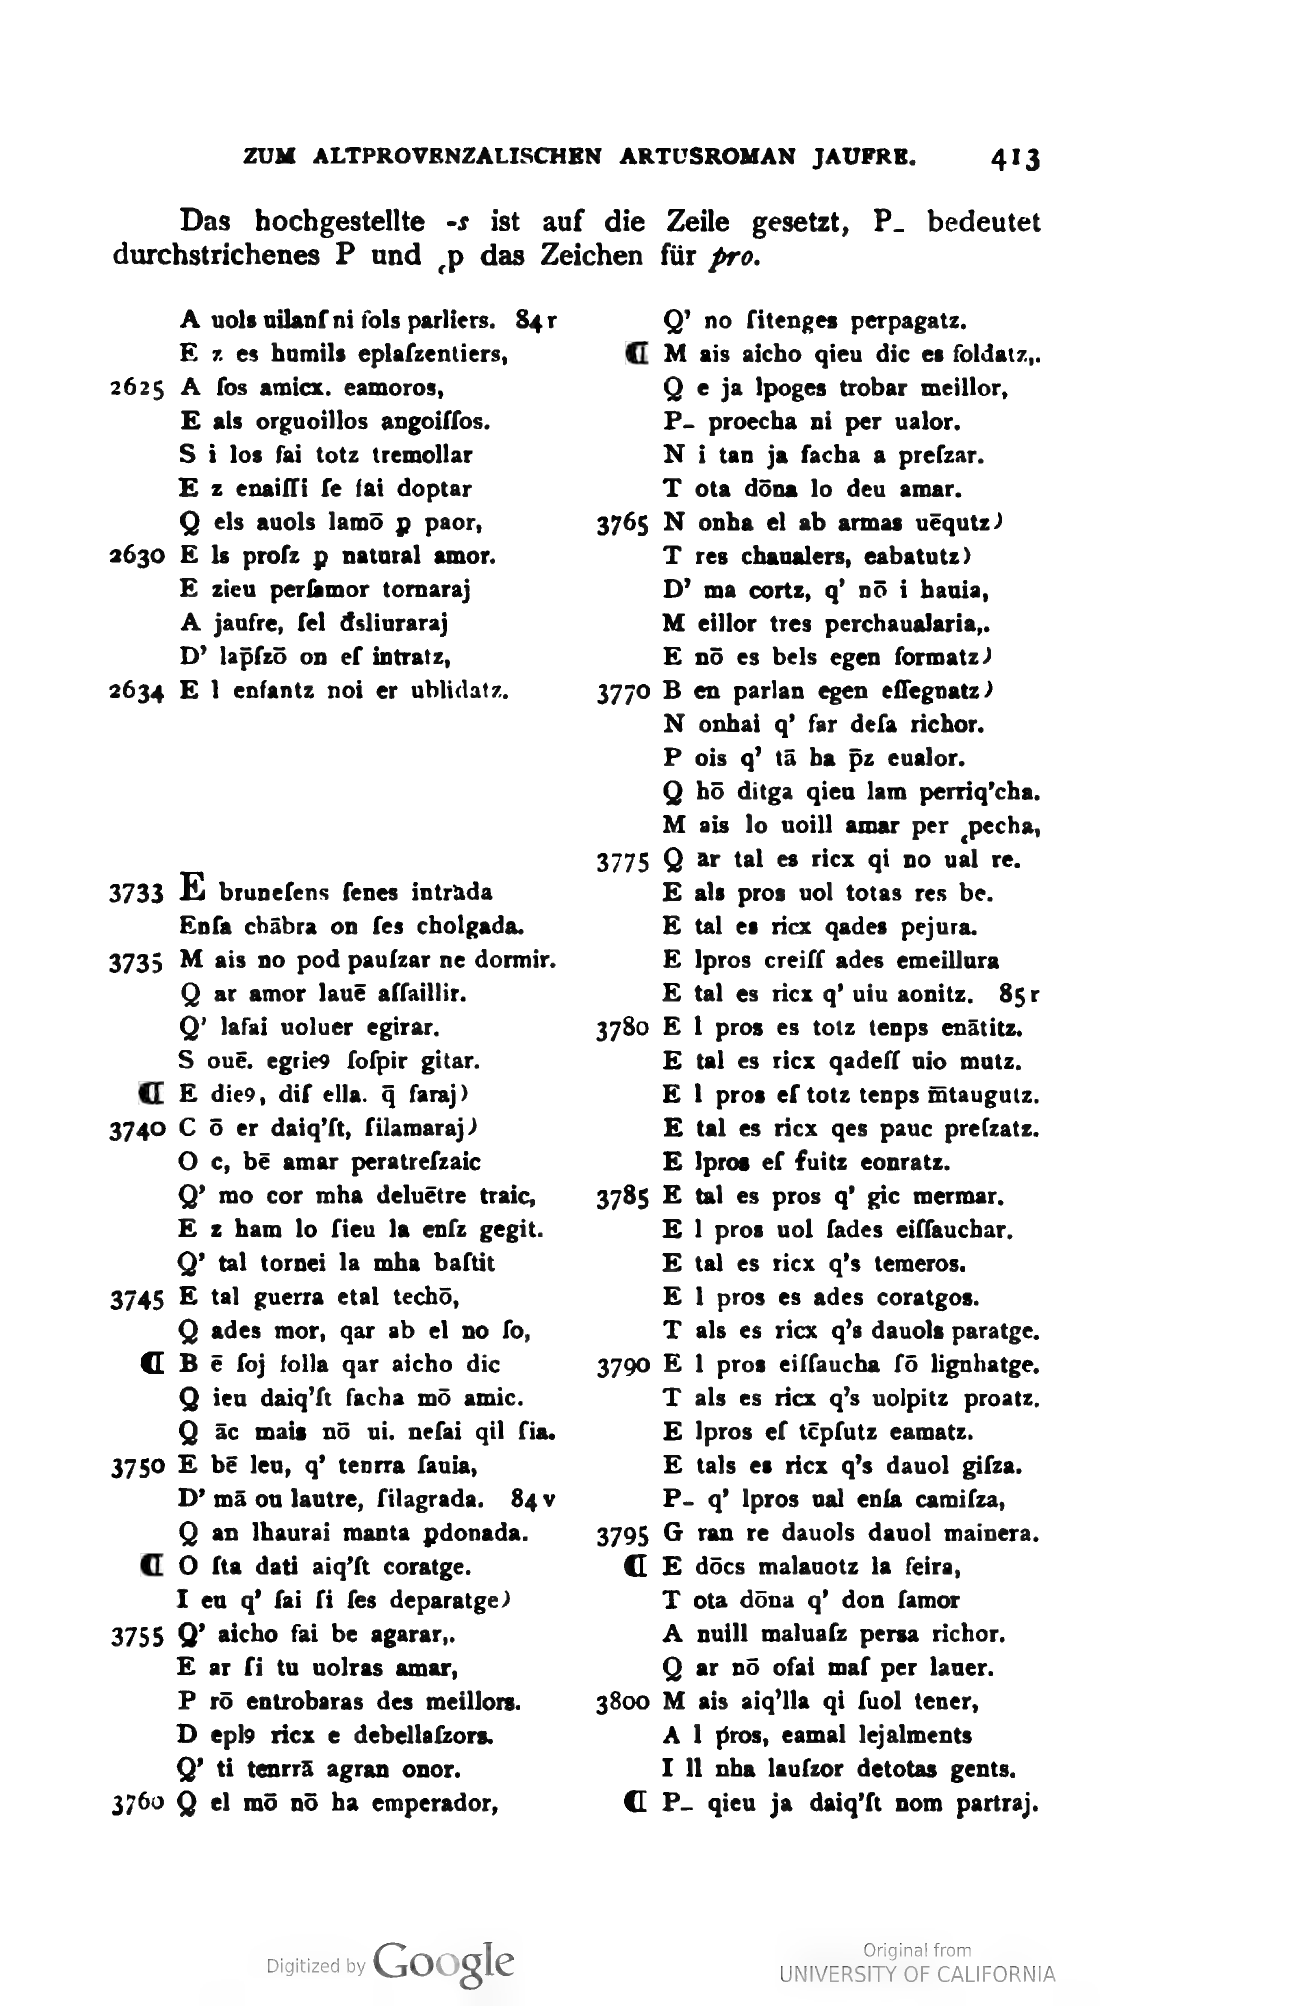 ZUM ALTPROVENZALISCHEN ARTUSROMAN JAUFRE. 413
Das hochgestellte -s ist auf die Zeile gesetzt, P_ bedeutet
durchstrichenes P und ˛p das Zeichen für pro.
A uols uilanſ ni fols parliers. 84 r
E z es humils eplaſzentiers,
2625 A ſos amicx. eamoros,
E als orguoillos angoiſſos.
S i los fai totz tremollar
E z enaiſſi ſe fai doptar
Q els auols lamō ꝑ paor,
2630 E ls proſz ꝑ natural amor.
E zieu perſamor tornaraj
A jaufre, ſel đsliuraraj
D’ lap̄ſzō on eſ intratz,
2634 E l enfantz noi er ublidatz.
3733 E bruneſens ſenes intrada
Enſa chābra on ſes cholgada.
3735 M ais no pod pauſzar ne dormir.
Q ar amor lauē aſſaillir.
Q’ lafai uoluer egirar.
S ouē. egrie9 ſoſpir gitar.
¶ E die9, diſ ella. q̄ faraj)
3740 C ō er daiq’ſt, ſilamaraj)
O c, bē amar peratreſzaic
Q’ mo cor mha deluētre traic,
E z ham lo ſieu la enſz gegit.
Q’ tal tornei la mha baſtit
3745 E tal guerra etal techō,
Q ades mor, qar ab el no ſo,
¶ B ē ſoj folla qar aicho dic
Q ieu daiq’ſt facha mō amic.
Q āc mais nō ui. neſai qil ſia.
3750 E bē leu, q’ tenrra ſauia,
D’ mā ou lautre, ſilagrada. 84 v
Q an lhaurai manta ꝑdonada.
¶ O ſta dati aiq’ſt coratge.
I eu q’ ſai ſi ſes deparatge)
3755 Q’ aicho fai be agarar,.
E ar ſi tu uolras amar,
P rō entrobaras des meillors.
D epl9 ricx e debellaſzors.
Q’ ti tenrrā agran onor.
3760 Q el mō nō ha emperador,
Q’ no ſitenges perpagatz.
¶ M ais aicho qieu dic es foldatz,.
Q e ja lpoges trobar meillor,
P_ proecha ni per ualor.
N i tan ja facha a preſzar.
T ota dōna lo deu amar.
3765 N onha el ab armas uēqutz)
T res chaualers, eabatutz)
D’ ma cortz, q’ nō i hauia,
M eillor tres perchaualaria,.
E nō es bels egen formatz)
3770 B en parlan egen eſſegnatz)
N onhai q’ far deſa richor.
P ois q’ tā ha p̄z eualor.
Q hō ditga qieu lam perriq’cha.
M ais lo uoill amar per ˛pecha,
3775 Q ar tal es ricx qi no ual re.
E als pros uol totas res be.
E tal es ricx qades pejura.
E lpros creiſſ ades emeillura
E tal es ricx q’ uiu aonitz. 85 r
3780 E l pros es totz tenps enātitz.
E tal es ricx qadeſſ uio mutz.
E l pros eſ totz tenps m̄taugutz.
E tal es ricx qes pauc preſzatz.
E lpros eſ fuitz eonratz.
3785 E tal es pros q’ gic mermar.
E l pros uol ſades eiſſauchar.
E tal es ricx q’s temeros.
E l pros es ades coratgos.
T als es ricx q’s dauols paratge.
3790 E l pros eiſſaucha ſō lignhatge.
T als es ricx q’s uolpitz proatz.
E lpros eſ tc̄pſutz eamatz.
E tals es ricx q’s dauol giſza.
P_ q’ lpros ual enſa camiſza,
3795 G ran re dauols dauol mainera.
¶ E dōcs malauotz la feira,
T ota dōna q’ don ſamor
A nuill maluaſz persa richor.
Q ar nō ofai maſ per lauer.
3800 M ais aiq’lla qi ſuol tener,
A l ṕros, eamal lejalments
I ll nha lauſzor detotas gents.
¶ P_ qieu ja daiq’ſt nom partraj.
Digitized by Google
Original from
UNIVERSITY OF CALIFORNIA